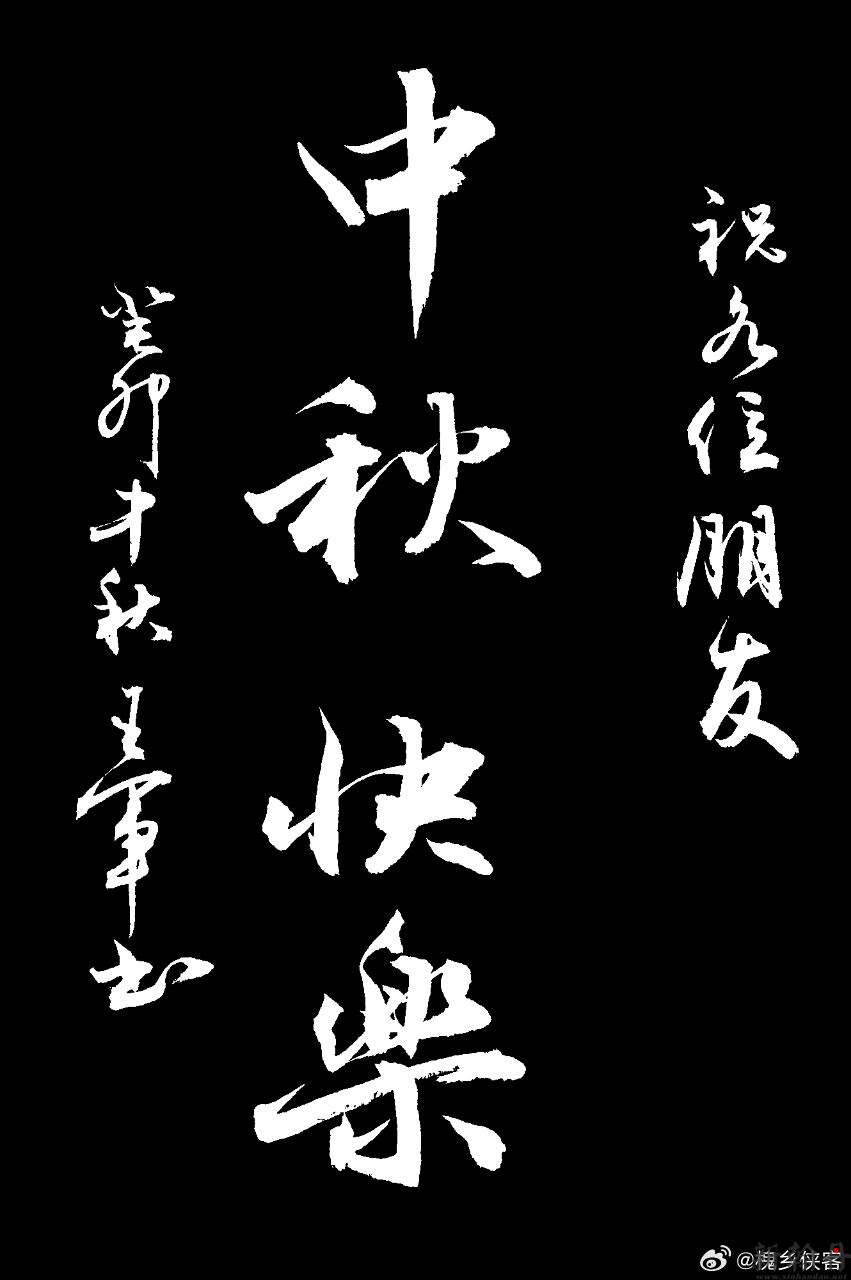 祝各位朋友
中秋快樂
癸卯中秋王軍书
@槐乡侠客
www.xinhandan.net